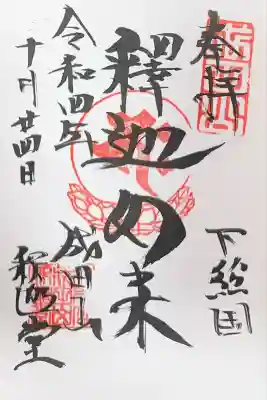 奉拝
下総国
釋迦如来
令和四年
成田山
十月廿四日
釈迦堂